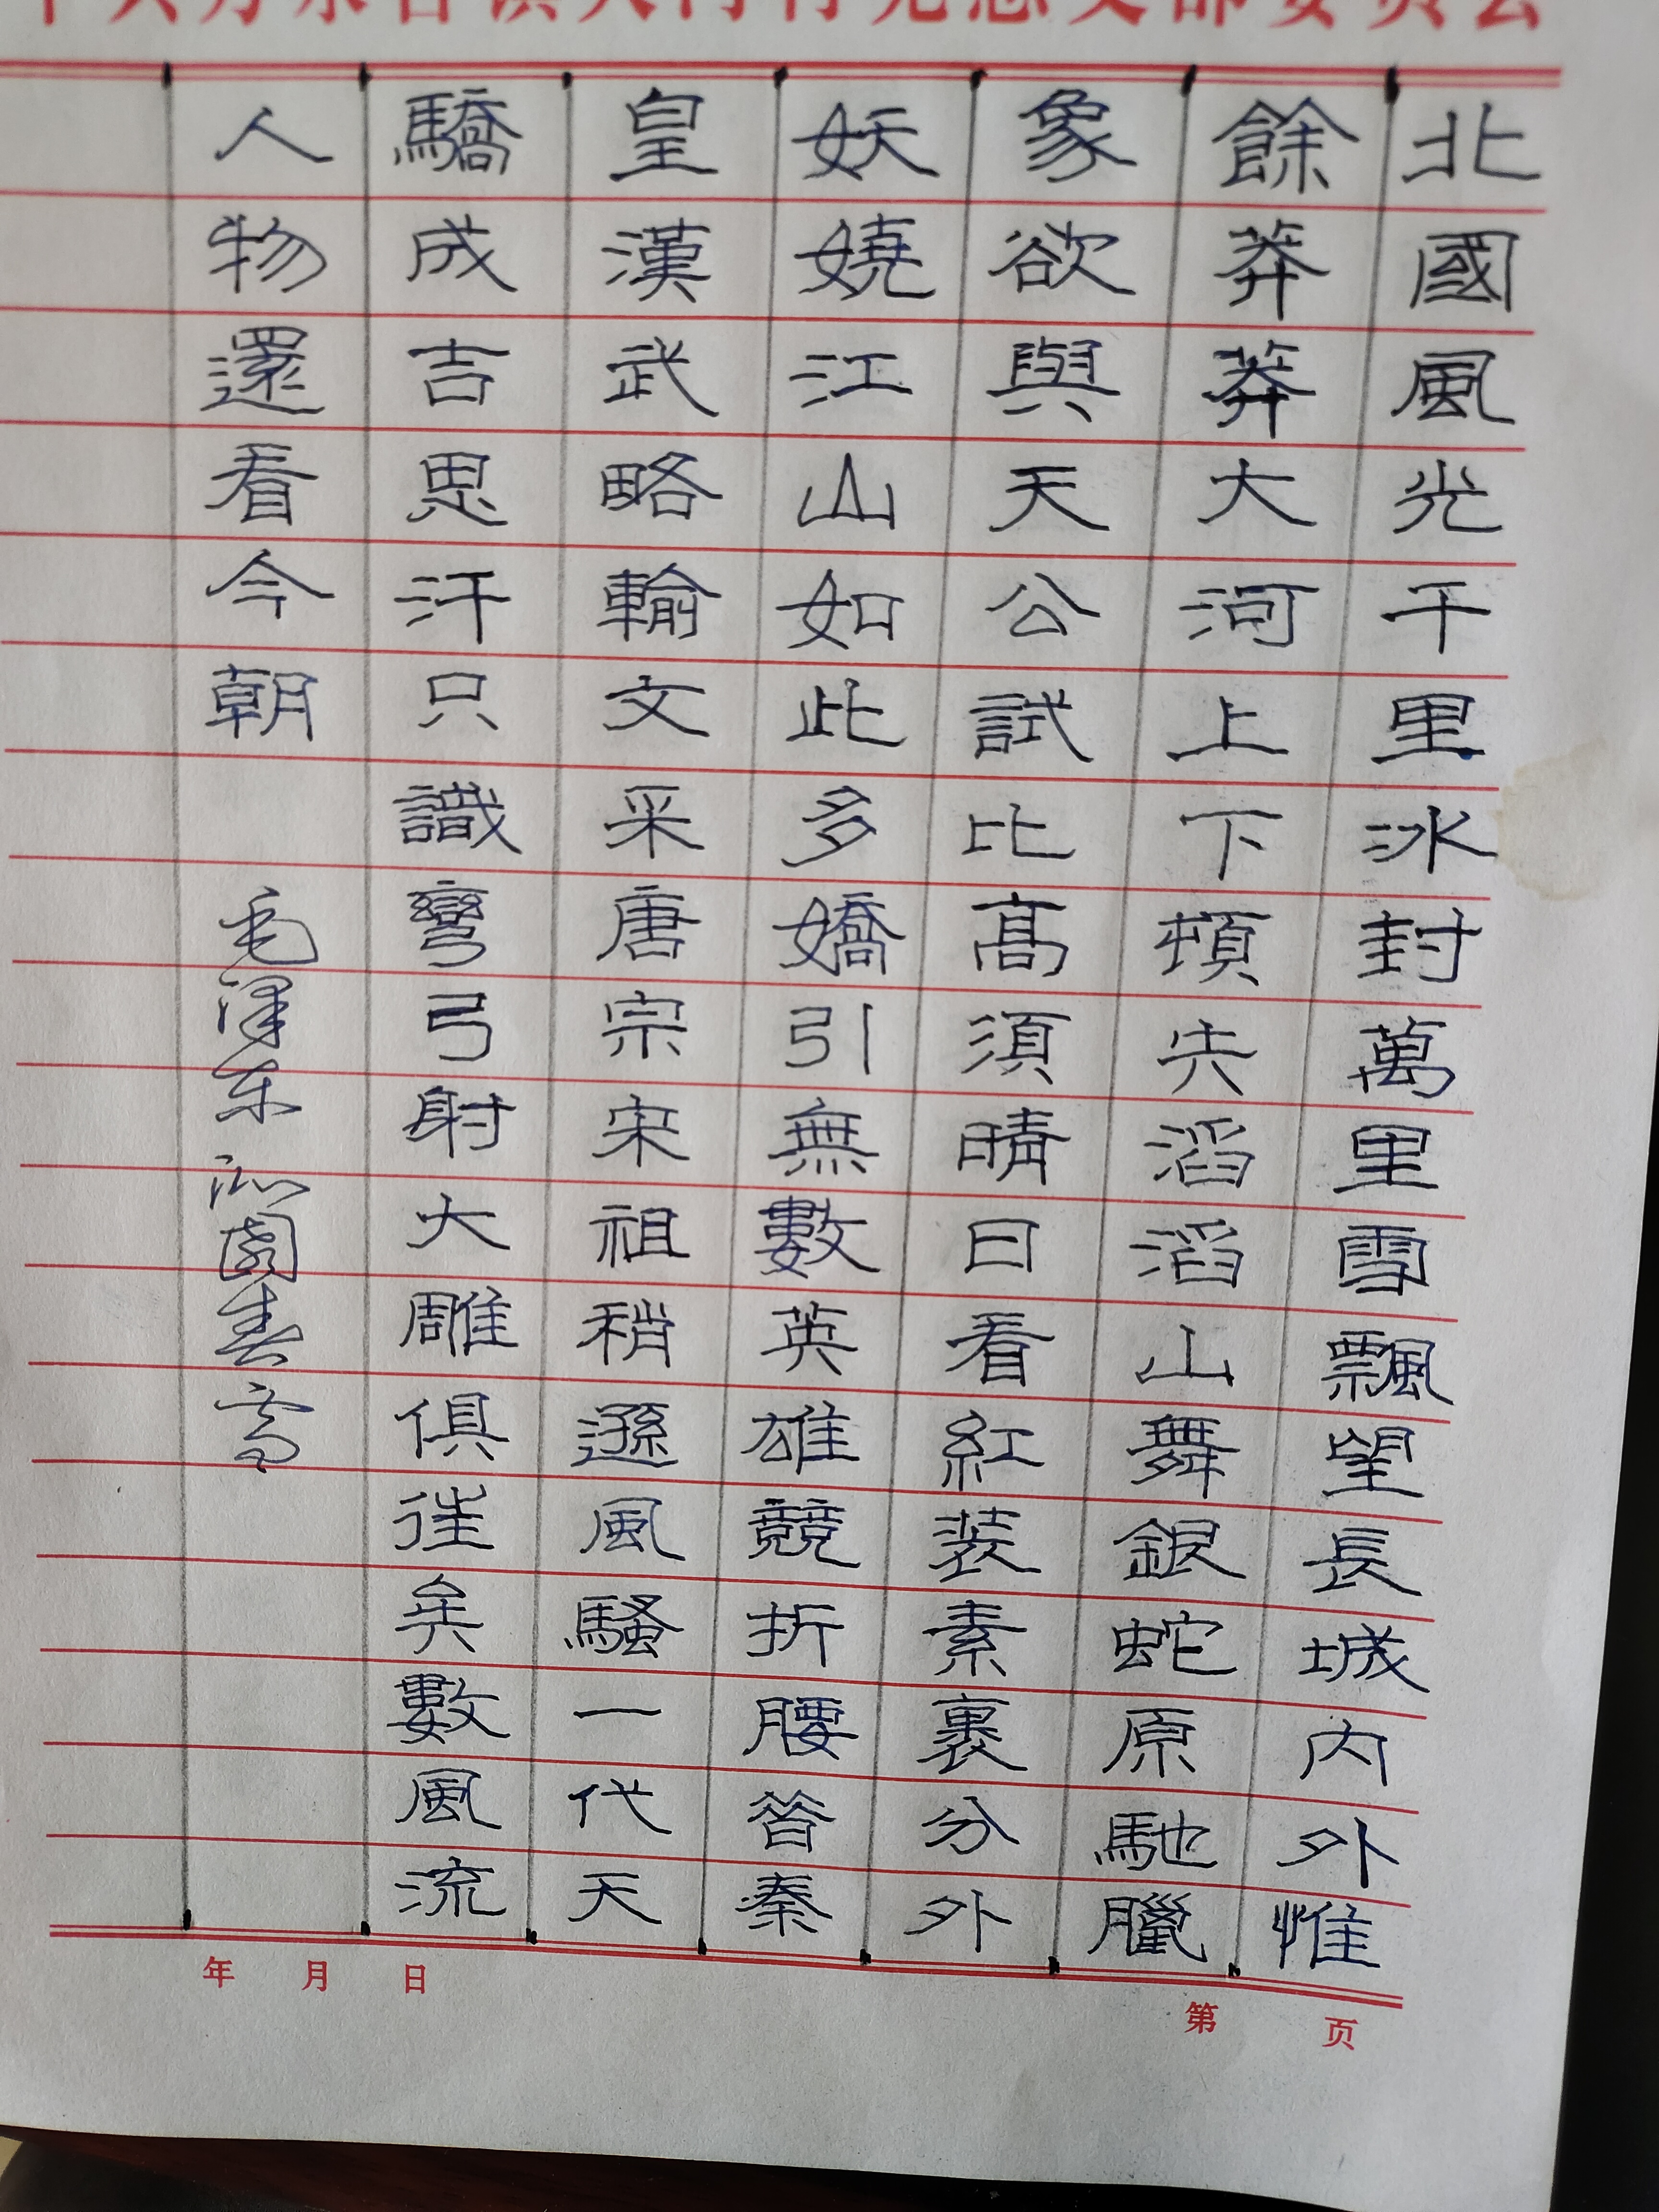 总支部委员会
北國風光千里冰封萬里雪飄望長城内外惟
餘莽莽大河上下頓失滔滔山舞銀蛇原馳臘
象欲與天公試比高須晴日看紅装素裹分外
妖嬈江山如此多嬌引無數英雄競折腰昔秦
皇漢武略輸文采唐宗宋祖稍遜風騷一代天
驕成吉思汗只識彎弓射大雕俱往矣數風流
人物還看今朝 毛澤东 沁園春 雪
年 月 日
第 页